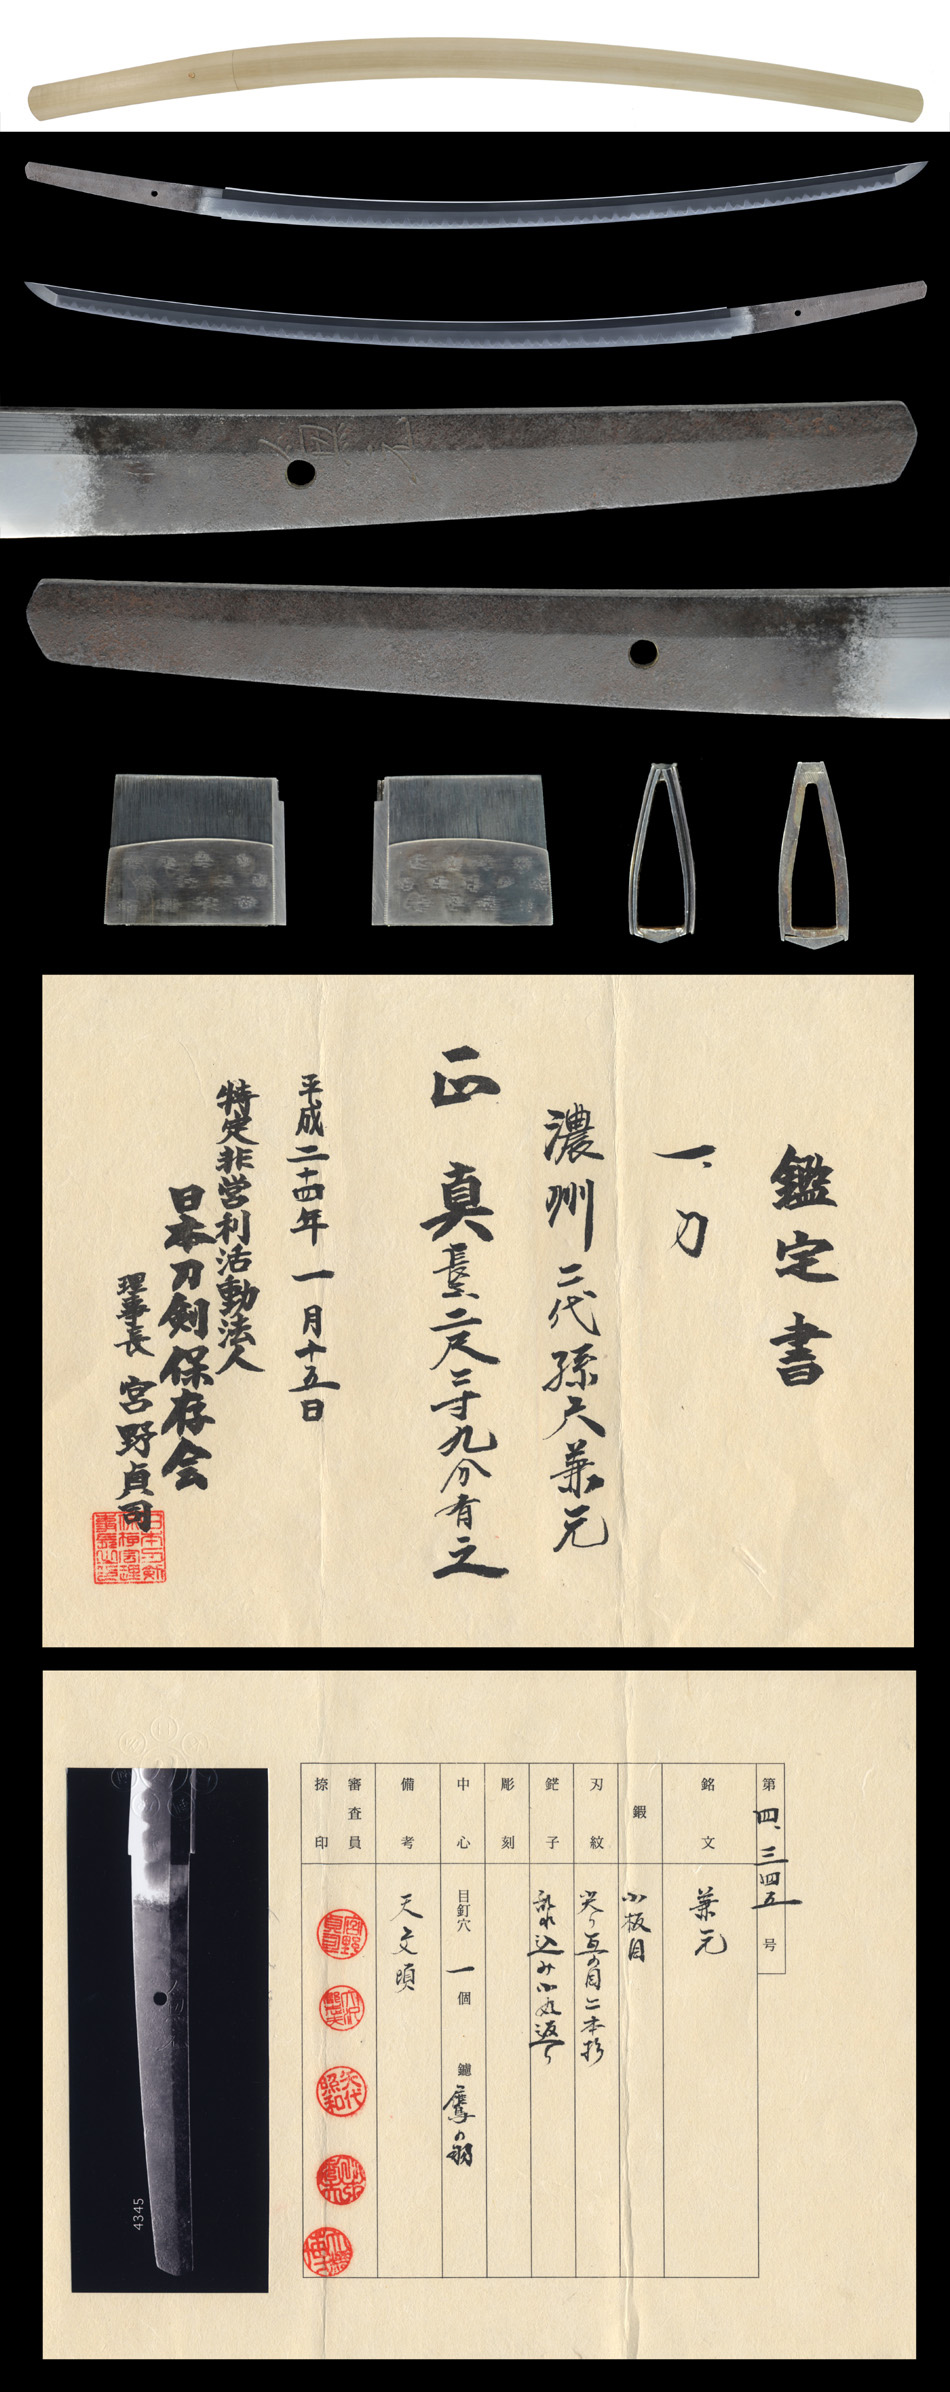 鑑定書
一、刀
濃州二代孫六兼元
正真長サ二尺二寸九分有之
平成二十四年一月十五日
特定非営利活動法人
日本刀剣保存会
理事長 宮野貞司
第四、三四五号
銘文
兼元
鍛
小板目
刃紋
尖り互の目二本杉
鋩子
乱れ込み小丸返り
彫刻
中心
目釘穴 一個 鑢 鷹の羽
備考
天文頃
審査員
捺印
4345